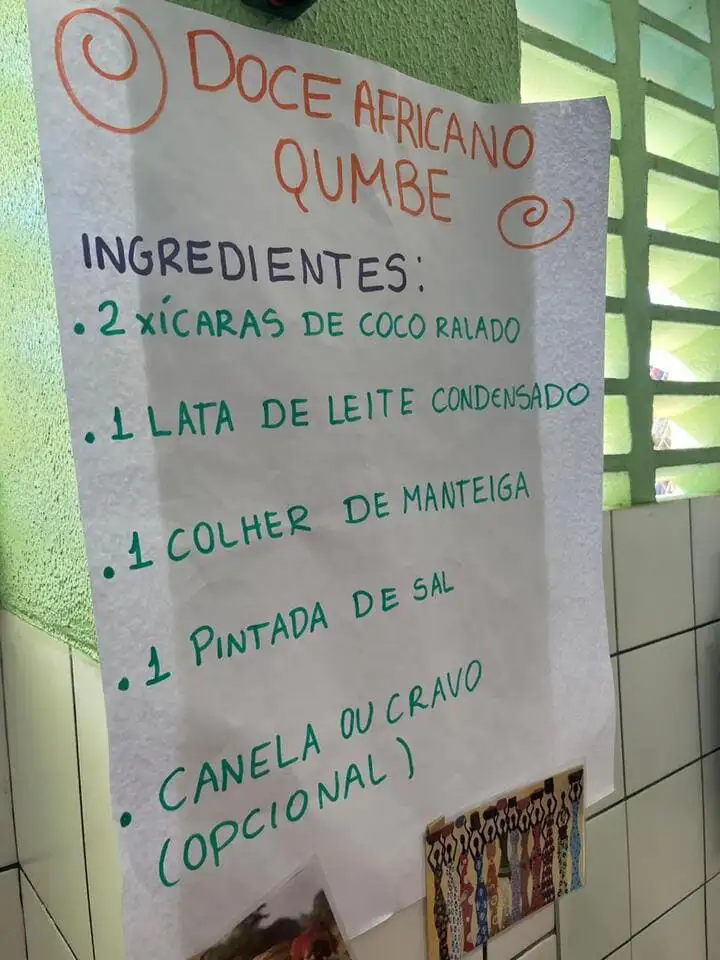 DOCE AFRICANO
QUMBE
INGREDIENTES:
• 2 XÍCARAS DE COCO RALADO
• 1 LATA DE LEITE CONDENSADO
• 1 COLHER DE MANTEIGA
• 1 PINTADA DE SAL
• CANELA OU CRAVO
(OPCIONAL)